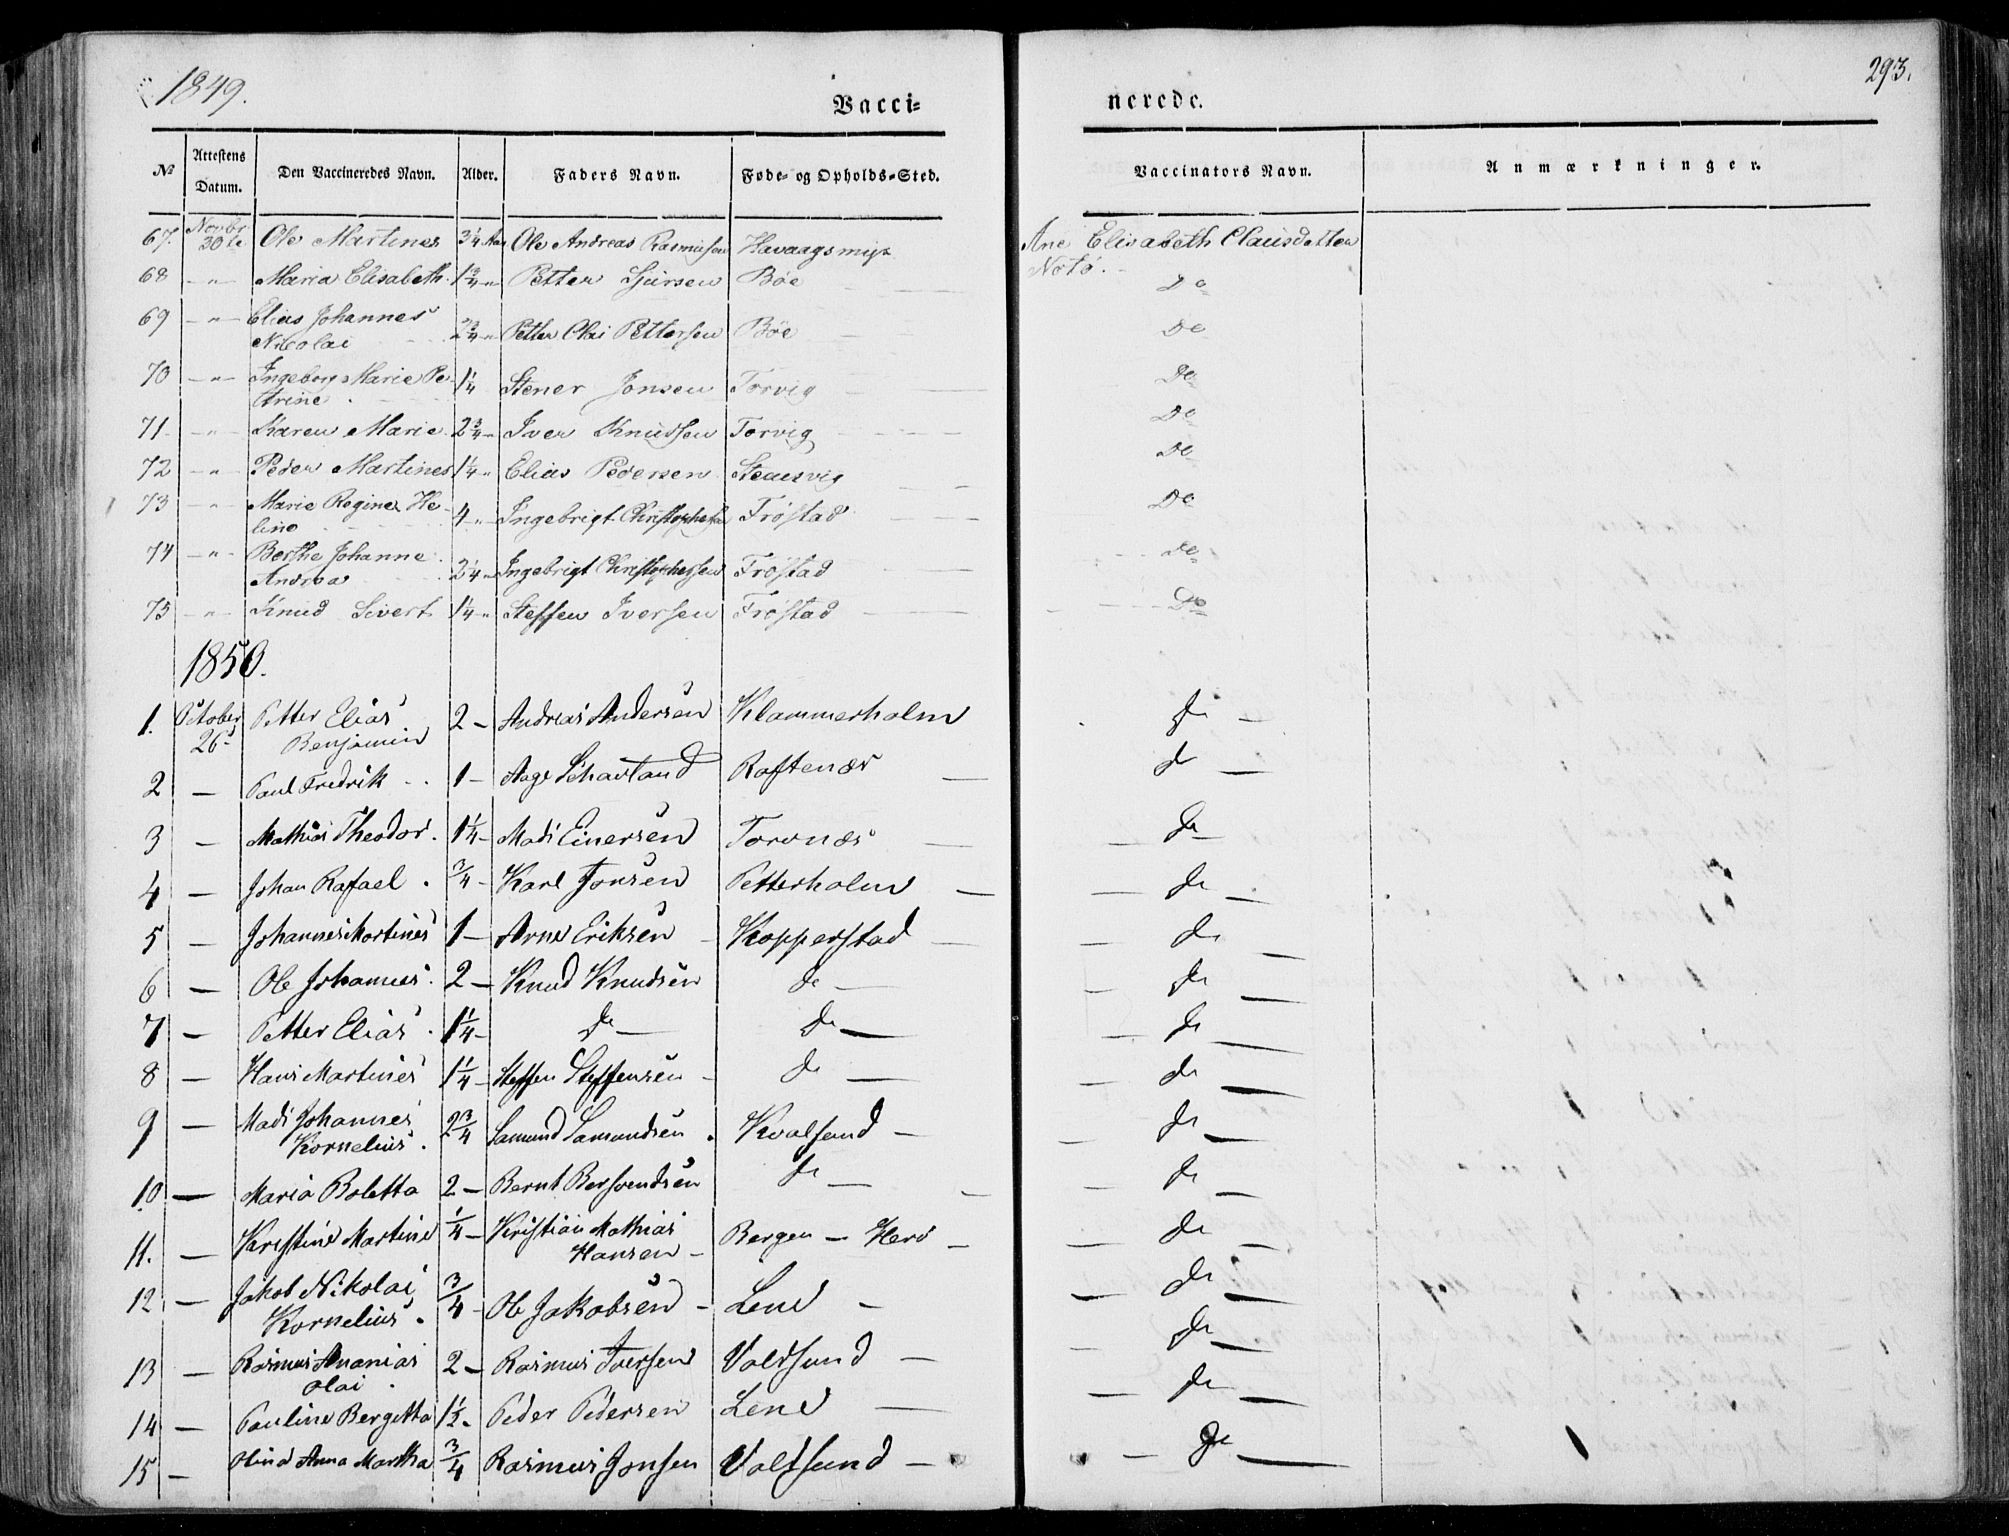 1849.
Vacci=
nerede.
293.
No
Attestens Datum.
Den Vaccineredes Navn.
Alder.
Faders Navn.
Føde- og Opholds-Sted.
Vaccinators Navn.
Anmærkninger.
67. Novbr 30te Ole Martines 3 1/4 Aar Ole Andreas Rasmussen Havaagsmyr Ane Elisabeth Clausdatter Notø.
68 - " - Maria Elisabeth 1 3/4 " Petter Sjursen Bøe Do
69 - " - Elias Johannes Nicolai 2 3/4 " Petter Olai Pettersen Bøe Do
70 - " - Ingeborg Marie Petrine 1 1/4 Stener Jonsen Torvig Do
71 - " - Karen Marie 2 3/4 " Iver Knudsen Torvig Do
72 - " - Peder Martines 1 1/4 " Elias Pedersen Do
73 - " - Marie Regine Heline 4 " Ingebrigt Christophersen Frøstad Do
74 - " - Berthe Johanne Andrea 2 1/4 " Ingebrigt Christophersen Frøstad Do
75 - " - Knud Sivert 1 1/4 " Steffen Iversen Frøstad Do
1850.
1. October 26 - Petter Elias Benjamin 2 - Andreas Andersen Klammerholm do -
2 - Paul Fredrik - - 1 - Aage Raftenæs do -
3 - Mathias Theodor. 1 1/4 - Mads Einersen Torvnæs do -
4 - Johan Rafael . 3/4 - Karl Jonsen Petterholm do -
5 - Johannes Martines 1 - Arne Eriksen Kopperstad do -
6 - Ole Johannes. 2 - Knud Knudsen do - do -
7 - Petter Elias . 1 1/4 - do - do - do -
8 - Hans Martines 1 1/4 - Steffen Steffensen - do - do -
9 - Mads Johannes Kornelius . 2 3/4 Samund Samundsen . Kvalsund - do -
10 - Maria Boletta 2 - Bernt Bersvendsen do - do -
11. - Karestine Martine 1/4 - Kristian Mathias Hansen - Bergen - Herø - do -
12 - Jakob Nikolai Kornelius . 3/4 - Ole Jakobsen - Lene - do -
13 - Rasmus Ananias Olai . 2 - Rasmus Iversen Voldsund - do -
14 - Pauline Bergitta 1 1/2 - Peder Pedersen Lene - do -
15 - Olina Anna Martha 3/4 Rasmus Jonsen Voldsund - do -